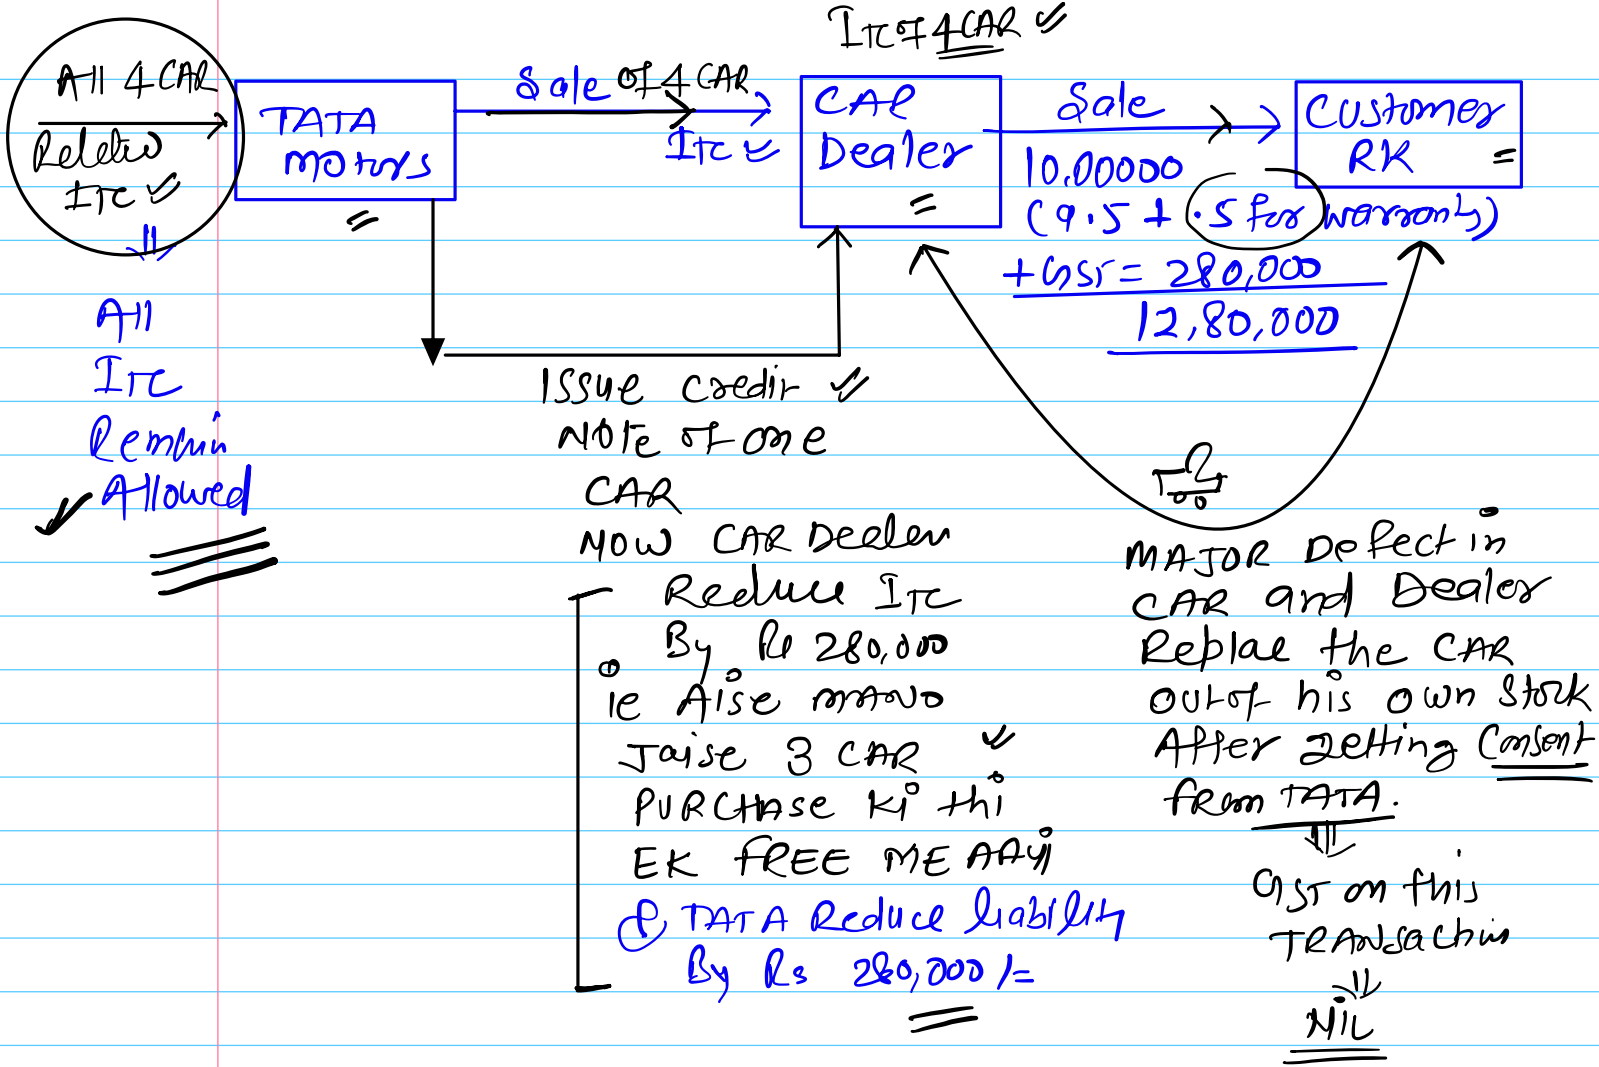 ITC of 4 CAR
All 4 CAR
Related
ITC
TATA
Motors
Sale of 4 CAR
ITC
CAR
Dealer
Sale
10,00000
(9.5 + .5 for warranty)
+ GST = 280,000
12,80,000
Customer
RK
All
ITC
Remain
Allowed
Issue credit
Note of one
CAR
Now CAR Dealer
Reduce ITC
By Rs 280,000
ie Aise mano
Jaise 3 CAR
PURCHASE Ki thi
EK FREE ME AAyi
TATA Reduce liability
By Rs 280,000/=
MAJOR Defect in
CAR and Dealer
Replae the CAR
out of his own Stock
After getting Consent
from TATA.
GST on this
TRANSaction
NIL